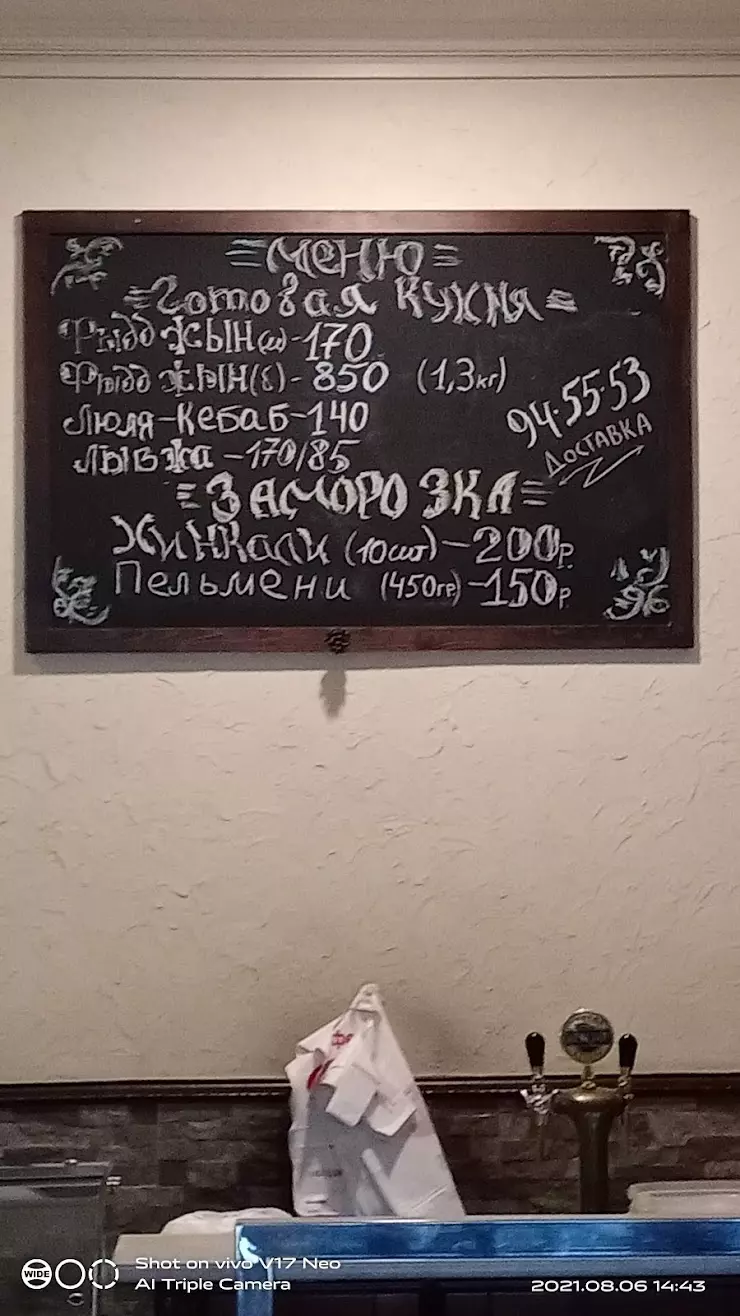 Меню
Готовая кухня
Фыдджын(м)-170
Фыдджын(б)-850 (1,3кг)
Люля-кебаб-140
Лывжа-170/85
94-55-53
Доставка
Заморозка
Хинкали (10шт)-200р.
Пельмени (450гр)-150р.
WIDE
Shot on vivo V17 Neo
AI Triple Camera
2021.08.06 14:43